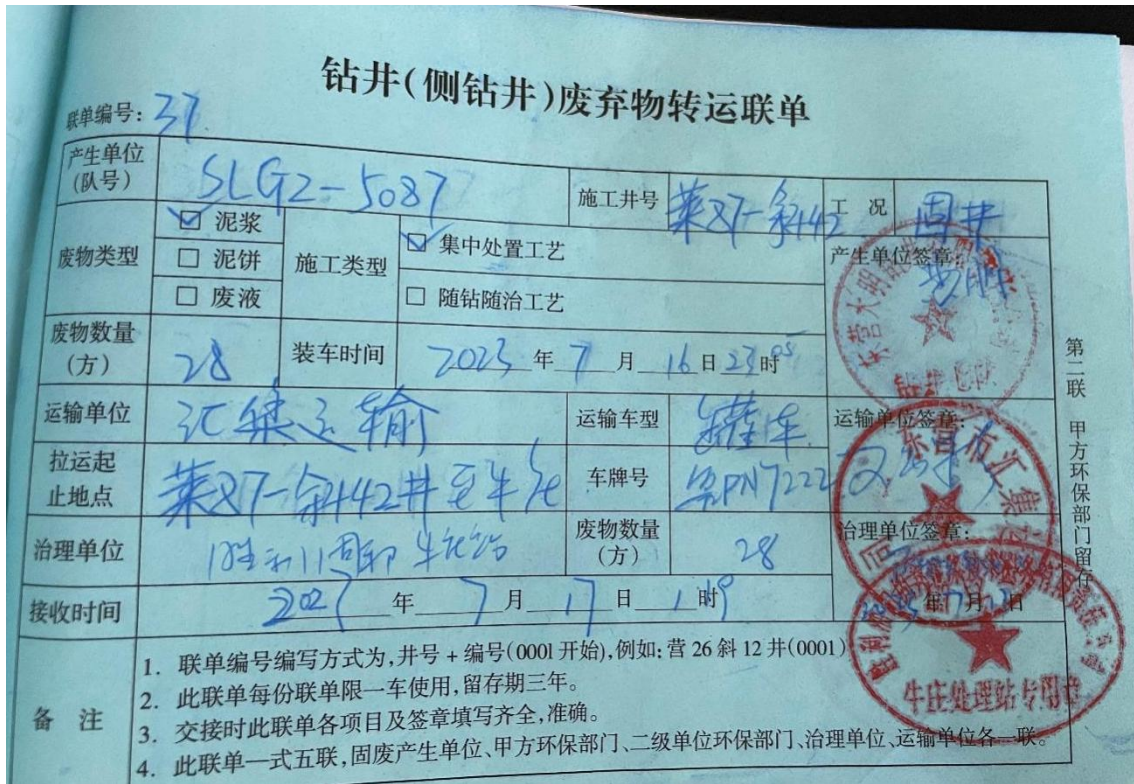 钻井(侧钻井)废弃物转运联单
联单编号: 37
产生单位(队号) SLG2-5087 施工井号 莱87-斜442 工况 固井
废物类型 ☑ 泥浆 施工类型 ☑ 集中处置工艺 产生单位签章:
□ 泥饼
□ 废液 □ 随钻随治工艺
废物数量(方) 28 装车时间 2023 年 7 月 16 日 23 时
运输单位 汇集运输 运输车型 罐车 运输单位签章:
拉运起止地点 莱87-斜442井至牛庄 车牌号
治理单位 废物数量(方) 28 治理单位签章:
接收时间 年 7 月 17 日 1 时 年 7 月 17 日
备注
1. 联单编号编写方式为,井号+编号(0001开始),例如:营26斜12井(0001)
2. 此联单每份联单限一车使用,留存期三年。
3. 交接时此联单各项目及签章填写齐全,准确。
4. 此联单一式五联,固废产生单位、甲方环保部门、二级单位环保部门、治理单位、运输单位各一联。
第二联 甲方环保部门留存
东营市汇集
牛庄处理站专用章